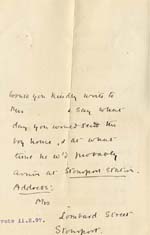 Would you kindly write to
Mrs & say what
day you would send the
boy home, & at what
time he'd probably
arrive at Stourport Station.
Address:
Mrs
Lombard Street
Stourport.